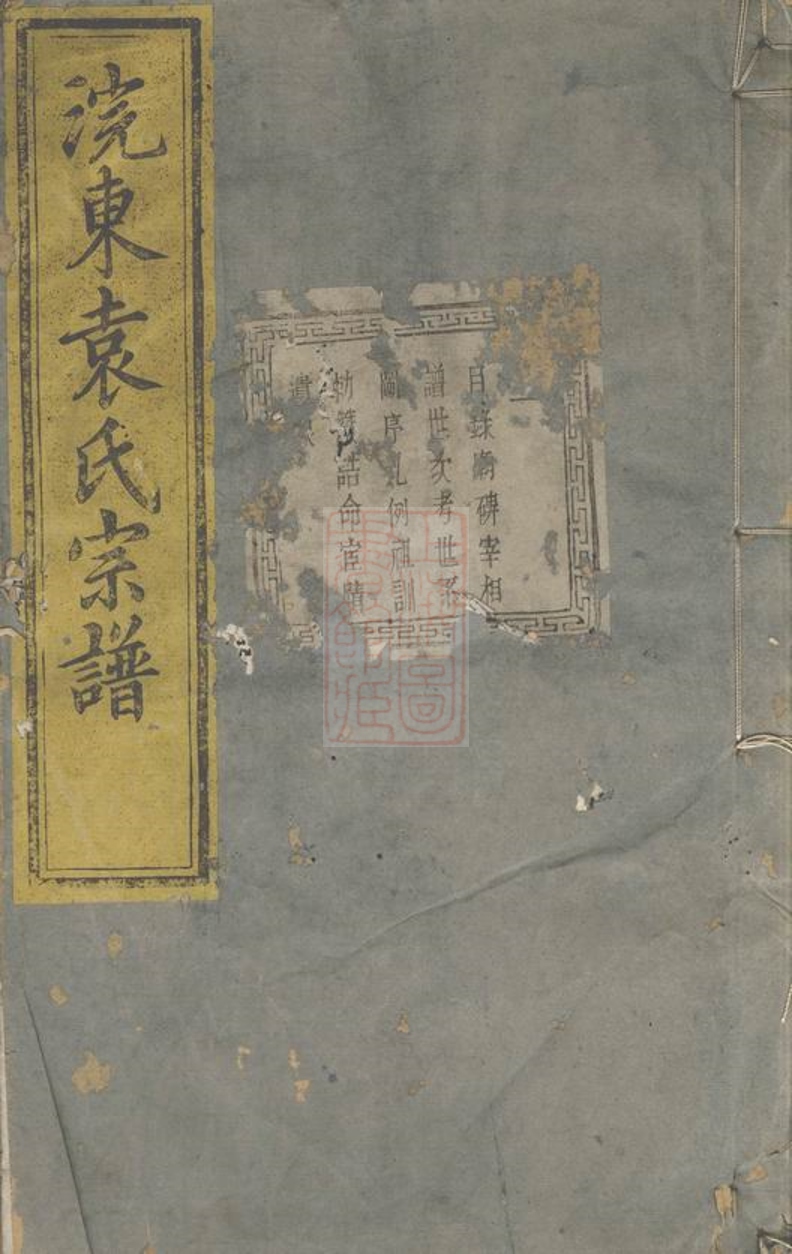 浣東袁氏宗譜
一
目錄 碑宰相
譜世次考世系
圖序凡例祖訓
勅 誥命宦蹟
遺